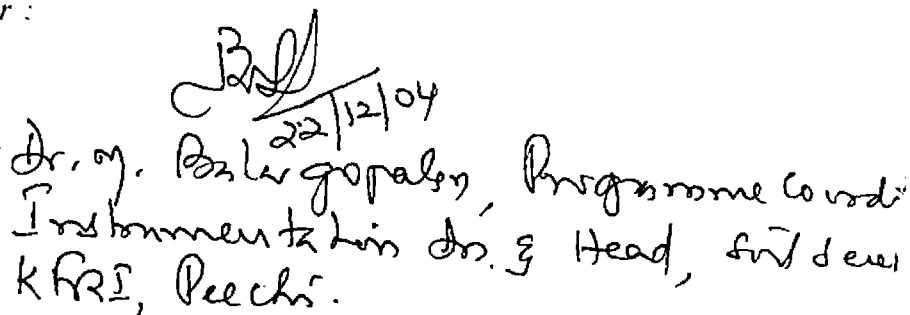 r:
22/12/04
Dr. M. Balagopalan, Programme Coordi
Instrumentation Dn. & Head, Soil
KFRI, Peechi.